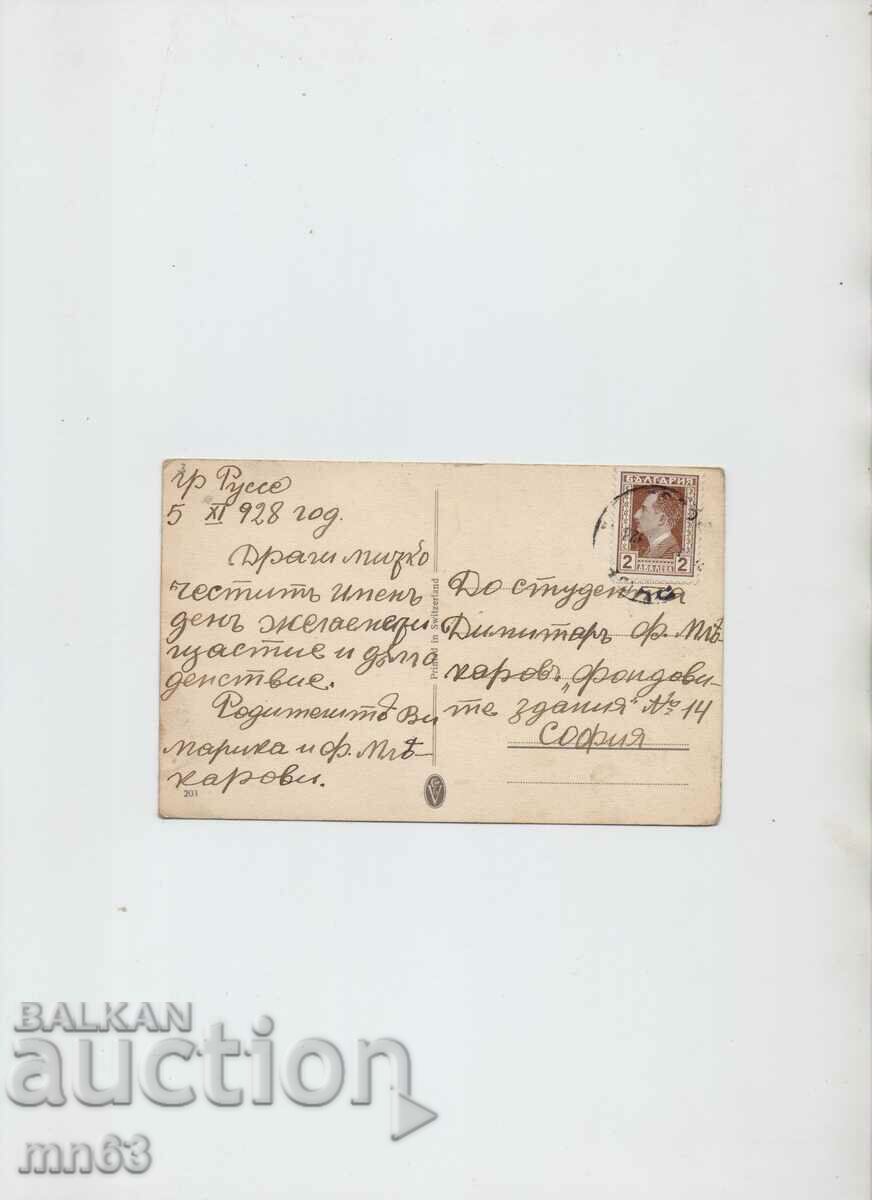 гр Руссе
5 XI 928 год.
Драги Мичко
честитъ Именъ
денъ желаем
щастие и дълго
денствие.
Родителитѣ Ви
Марика и Ф. Млѣ-
карови.
203
Printed in Switzerland
БЪЛГАРИЯ
2 ДВА ЛЕВА 2
До студента
Димитаръ Ф. Млѣ-
каровъ „фондови-
те здания" № 14
София
BALKAN
auction
mn63